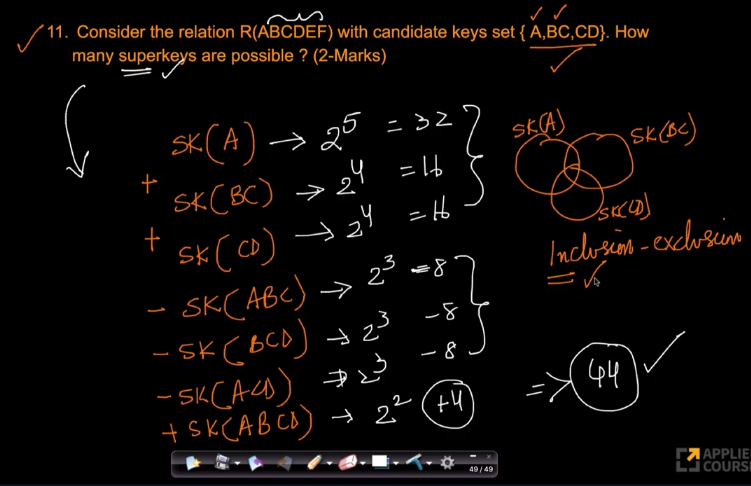 11. Consider the relation R(ABCDEF) with candidate keys set { A,BC,CD}. How
many superkeys are possible ? (2-Marks)
SK(A) → 2^5 = 32
+ SK(BC) → 2^4 = 16
+ SK(CD) → 2^4 = 16
- SK(ABC) → 2^3 = 8
- SK(BCD) → 2^3 - 8
- SK(ACD) → 2^3 - 8
+ SK(ABCD) → 2^2 +4
SK(A)
SK(BC)
SK(CD)
Inclusion-exclusion
=> 44
49 / 49
APPLIE
COURS